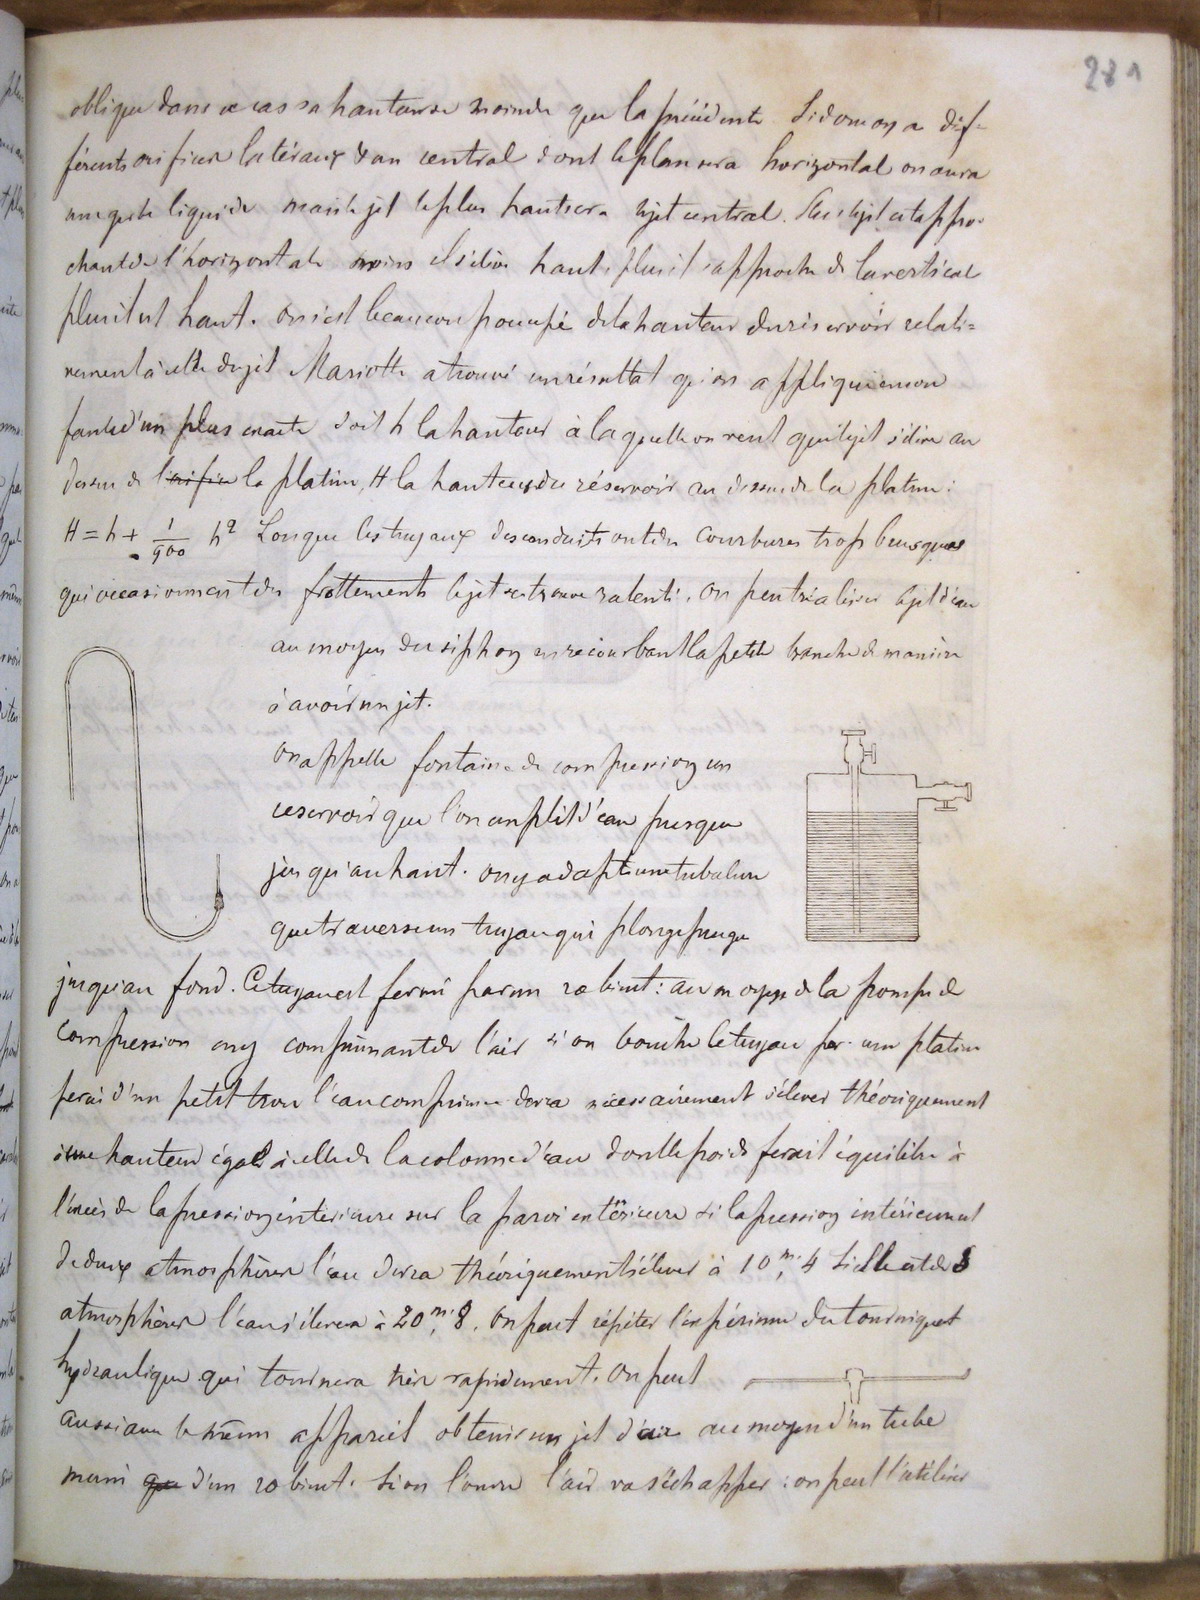 281
oblique dans ce cas sa hauteur se moindre que la précédente. Si donc on a dif=
férents orifices latéraux & un central dont le plan sera horizontal on aura
une gerbe liquide mais le jet le plus haut sera le jet central. Plus le jet est appro-
chant de l'horizontale moins il s'élève haut, plus il s'approche de la verticale
plus il est haut. On s'est beaucoup occupé de la hauteur du réservoir relati=
vement à celle du jet Mariotte a trouvé un résultat qu'on applique encore
faute d'un plus exacte soit h la hauteur à laquelle on veut que le jet s'élève au
dessus de l'orifice la platine, H la hauteur du réservoir au dessus de la platine:
H = h + 1/900 h² Lorsque les tuyaux des conduits ont des courbures trop brusques
qui occasionnent des frottements le jet se trouve ralenti. On peut réaliser le jet d'eau
au moyen du siphon en recourbant la petite branche de manière
à avoir un jet.
On appelle fontaine de compression un
reservoir que l'on emplit d'eau presque
jusqu'au haut. on y adapte une tubulure
que traverse un tuyau qui plonge presque
jusqu'au fond. Ce tuyau est fermé par un robinet: au moyen de la pompe de
compression on y comprimant de l'air si on bouche le tuyau par une platine
percé d'un petit trou l'eau comprimée devra nécessairement s'élever théoriquement
à une hauteur égale à celle de la colonne d'eau dont le poids ferait équilibre à
l'excès de la pression intérieure sur la paroi extérieure si la pression intérieure est
de deux atmosphères l'eau devra théoriquement s'élever à 10m,4 Si elle est de 3
atmosphères l'eau s'élevera à 20m,8. On peut répéter l'expérience du tourniquet
hydraulique qui tournera très rapidement. On peut
aussi avec le même appareil obtenir un jet d'air au moyen d'un tube
muni que d'un robinet. Si on l'ouvre l'air va s'échapper: on peut l'utiliser